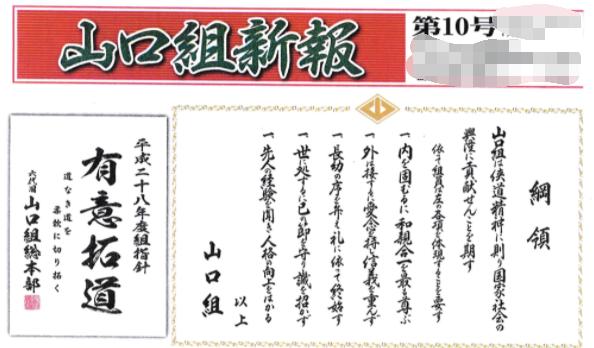 山口組新報
第10号
綱領
山口組は侠道精神に則り国家社会の
興隆に貢献せんことを期す
依て組員は左の各項を体現することを要す
一、内を固むるに和親合一を最も尊ぶ
一、外は接するに愛念を持し信義を重んず
一、長幼の序を弁え礼に依って終始す
一、世に処するに己の節を守り譏を招かず
一、先人の経験を聞き人格の向上をはかる
以上
山口組
平成二十八年度組指針
有意拓道
道なき道を
柔軟に切り拓く
六代目
山口組総本部